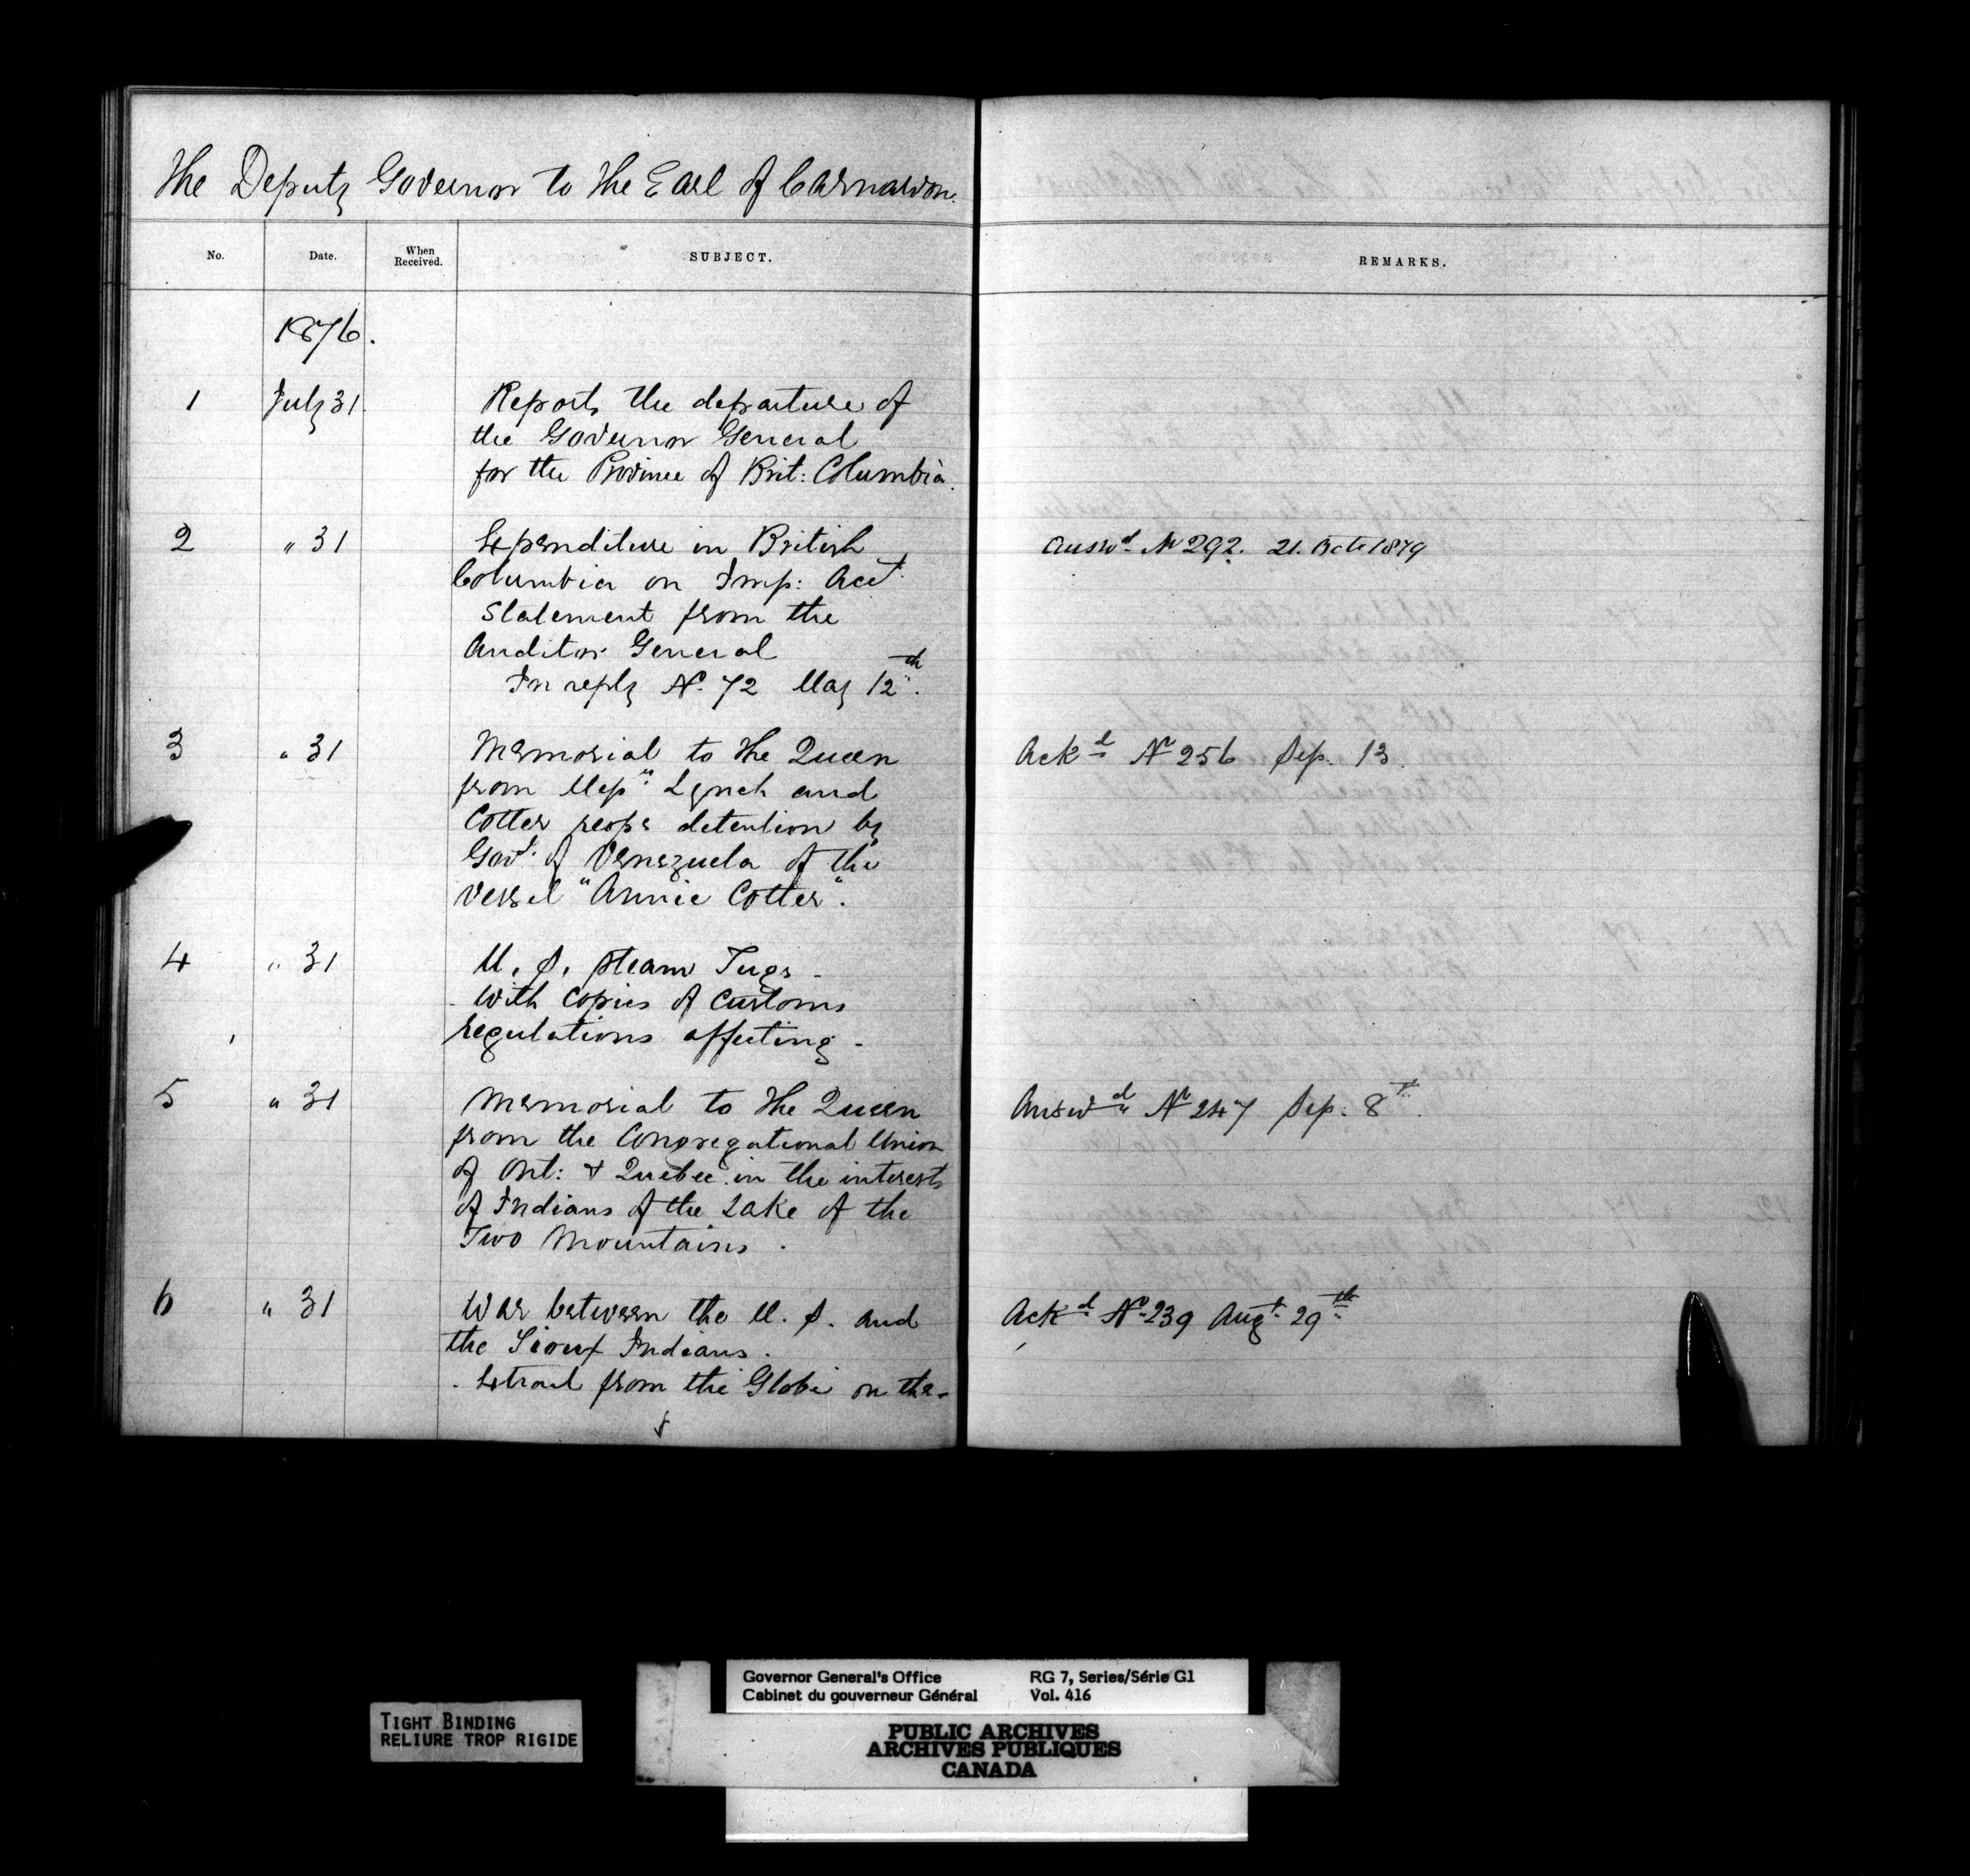 The Deputy Governor to The Earl of Carnarvon.
No. Date. When Received. SUBJECT. REMARKS.
1876.
1 July 31. Reports the departure of
the Governor General
for the Province of Brit: Columbia.
2 " 31 Expenditure in British Answd. No 292. 21. Octe 1879
Columbia on Imp: Acct.
Statement from the
Auditor General
In reply No. 72 May 12th.
3 " 31 Memorial to The Queen Ackd No 256 Sep. 13.
from Messrs. Lynch and
Cotter respg detention by
Govt. of Venezuela of the
vessel "Annie Cotter".
4 " 31 U. S. Steam Tugs -
- With copies of Customs
regulations affecting -
5 " 31 Memorial to The Queen Answd No 247 Sep. 8th.
from the Congregational Union
of Ont: & Quebec in the interests
of Indians of the Lake of the
Two Mountains.
6 " 31 War between the U. S. and Ackd No. 239 Augt. 29th
the Sioux Indians.
- Extract from the Globe on the -
TIGHT BINDING
RELIURE TROP RIGIDE
Governor General's Office RG 7, Series/Série G1
Cabinet du gouverneur Général Vol. 416
PUBLIC ARCHIVES
ARCHIVES PUBLIQUES
CANADA